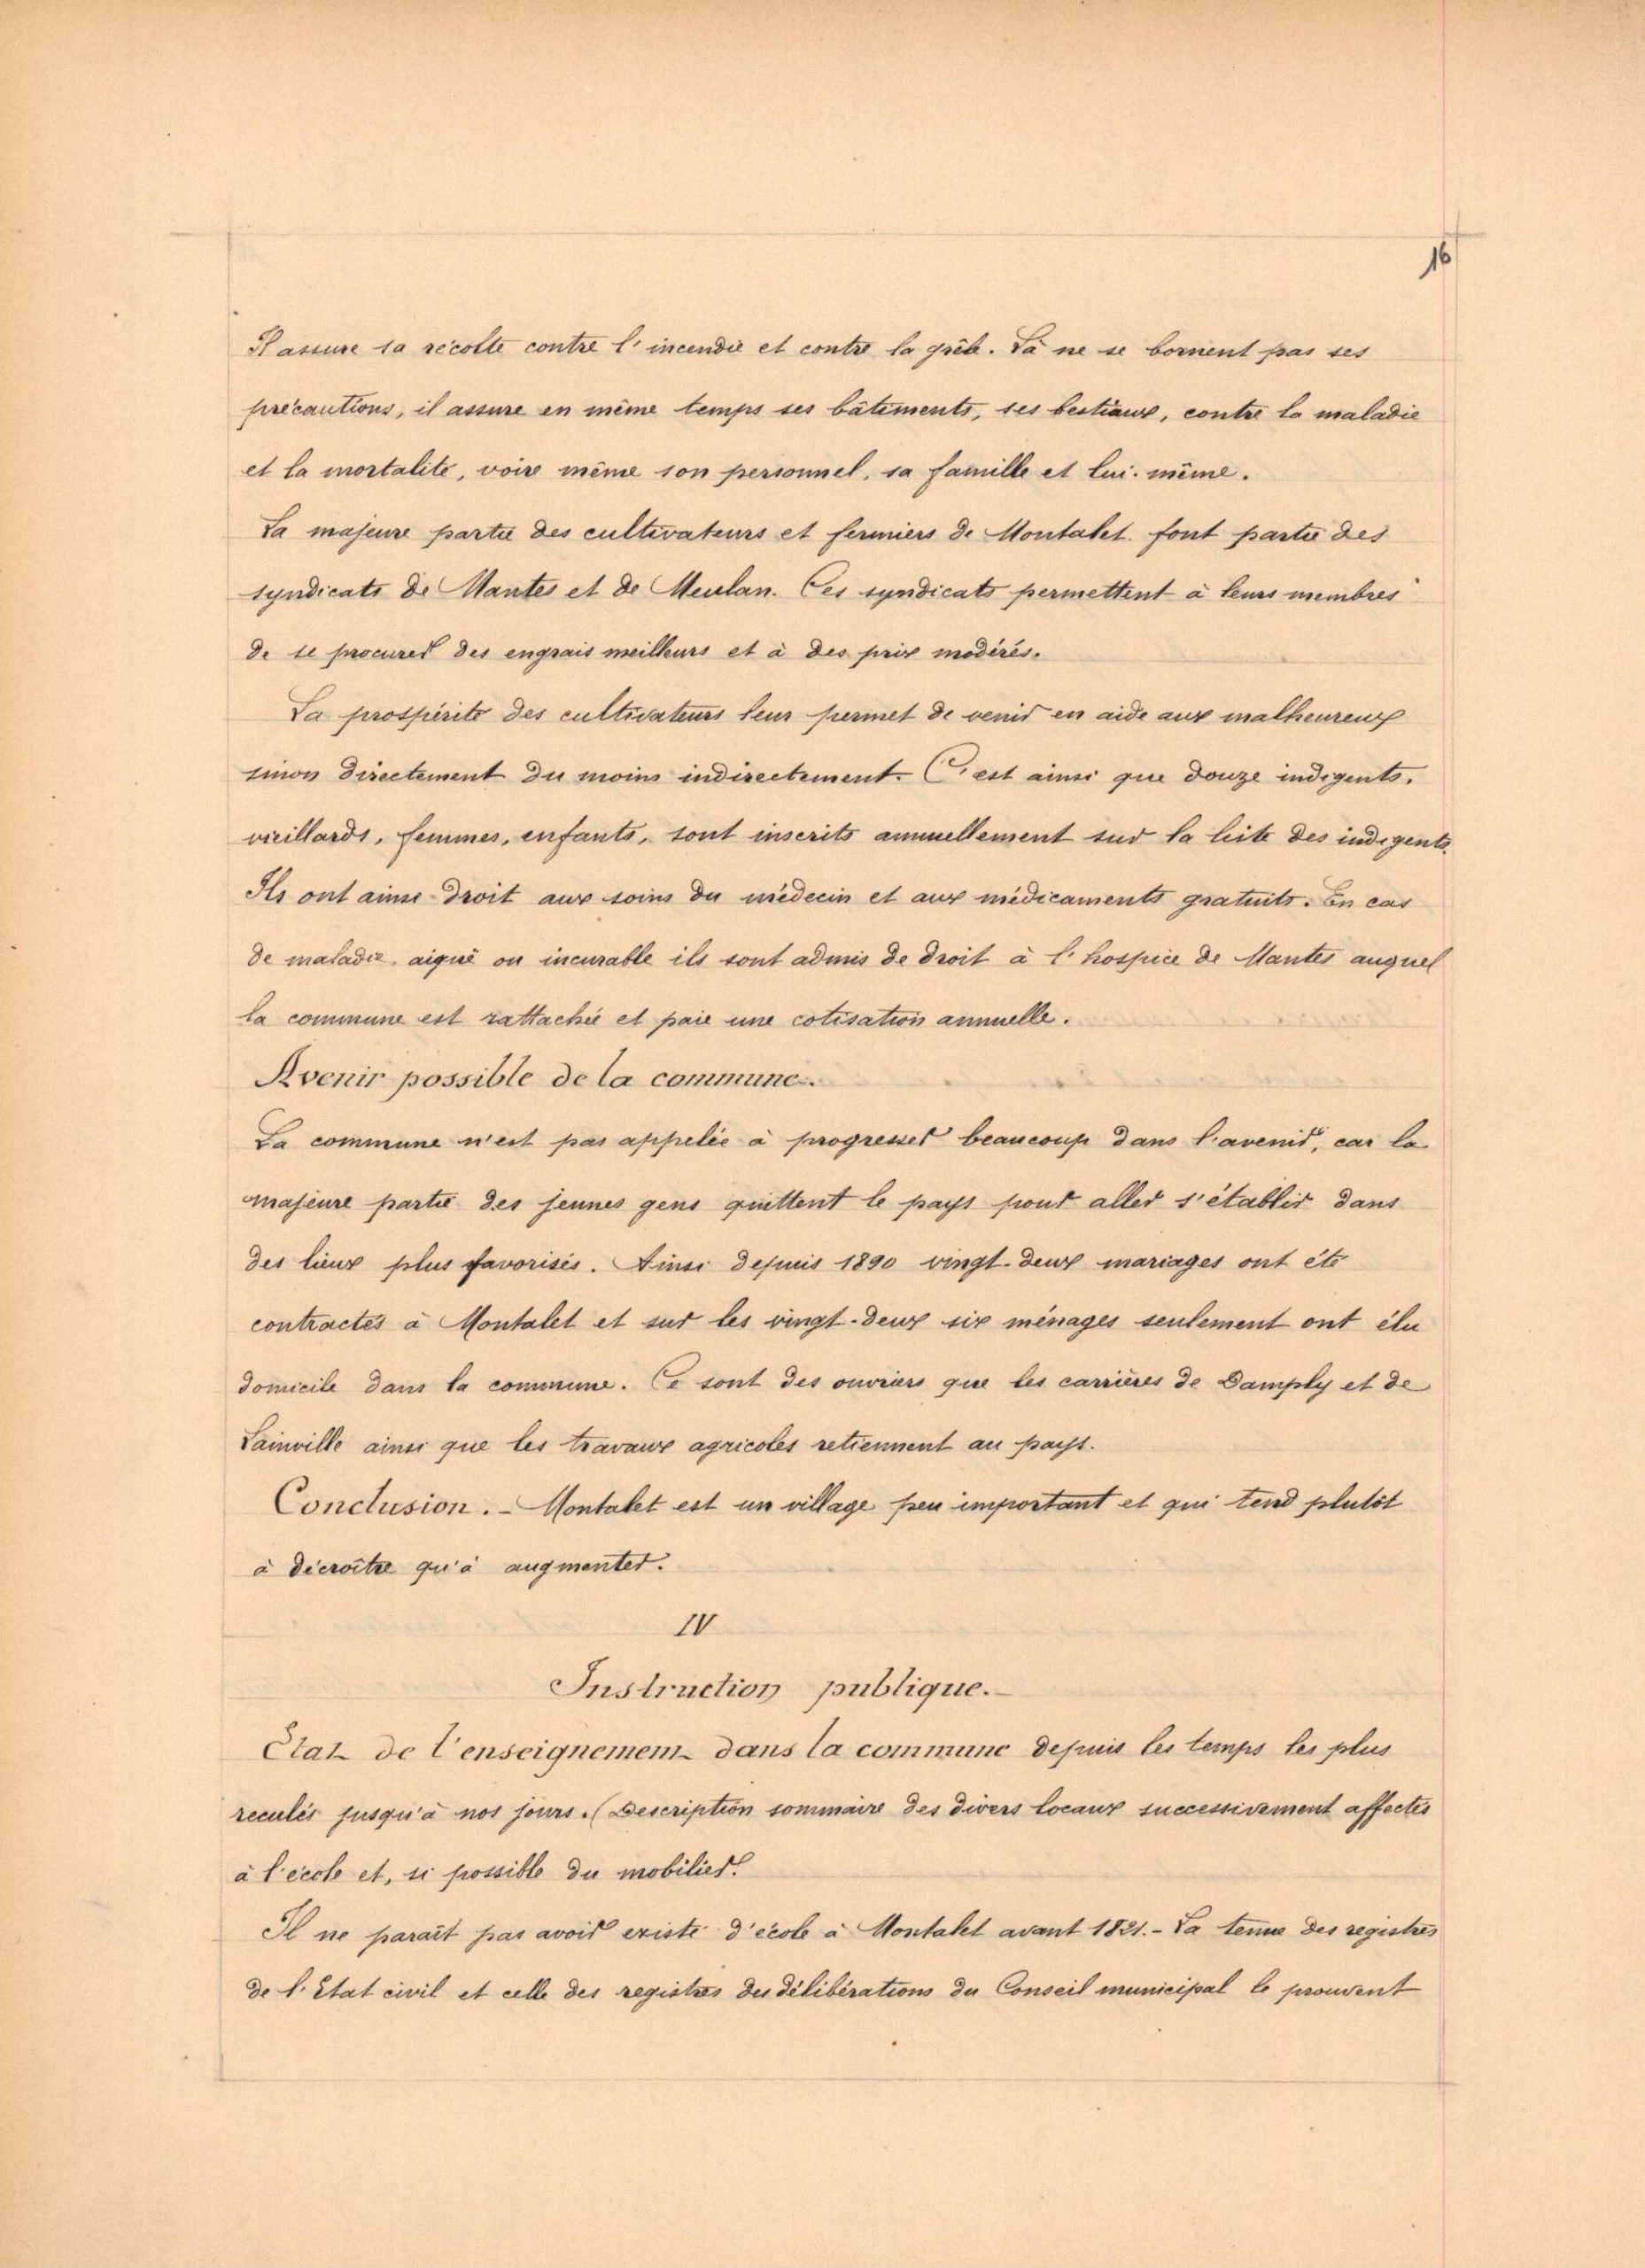 16
Il assure sa récolte contre l'incendie et contre la grêle. Là ne se bornent pas ses
précautions, il assure en même temps ses bâtiments, ses bestiaux, contre la maladie
et la mortalité, voire même son personnel, sa famille et lui-même.
La majeure partie des cultivateurs et fermiers de Montalet font partie des
syndicats de Mantes et de Meulan. Ces syndicats permettent à leurs membres
de se procurer des engrais meilleurs et à des prix modérés.
La prospérité des cultivateurs leur permet de venir en aide aux malheureux
sinon directement du moins indirectement. C'est ainsi que douze indigents,
vieillards, femmes, enfants, sont inscrits annuellement sur la liste des indigents.
Ils ont ainsi droit aux soins du médecin et aux médicaments gratuits. En cas
de maladie aiguë ou incurable ils sont admis de droit à l'hospice de Mantes auquel
la commune est rattachée et paie une cotisation annuelle.
Avenir possible de la commune.
La commune n'est pas appelée à progresser beaucoup dans l'avenir, car la
majeure partie des jeunes gens quittent le pays pour aller s'établir dans
des lieux plus favorisés. Ainsi depuis 1890 vingt-deux mariages ont été
contractés à Montalet et sur les vingt-deux six ménages seulement ont élu
domicile dans la commune. Ce sont des ouvriers que les carrières de Damply et de
Lainville ainsi que les travaux agricoles retiennent au pays.
Conclusion. - Montalet est un village peu important et qui tend plutôt
à décroître qu'à augmenter.
IV
Instruction publique.-
Etat de l'enseignement dans la commune depuis les temps les plus
reculés jusqu'à nos jours. (Description sommaire des divers locaux successivement affectés
à l'école et, si possible du mobilier.)
Il ne paraît pas avoir existé d'école à Montalet avant 1821. - La tenue des registres
de l'Etat civil et celle des registres des délibérations du Conseil municipal le prouvent